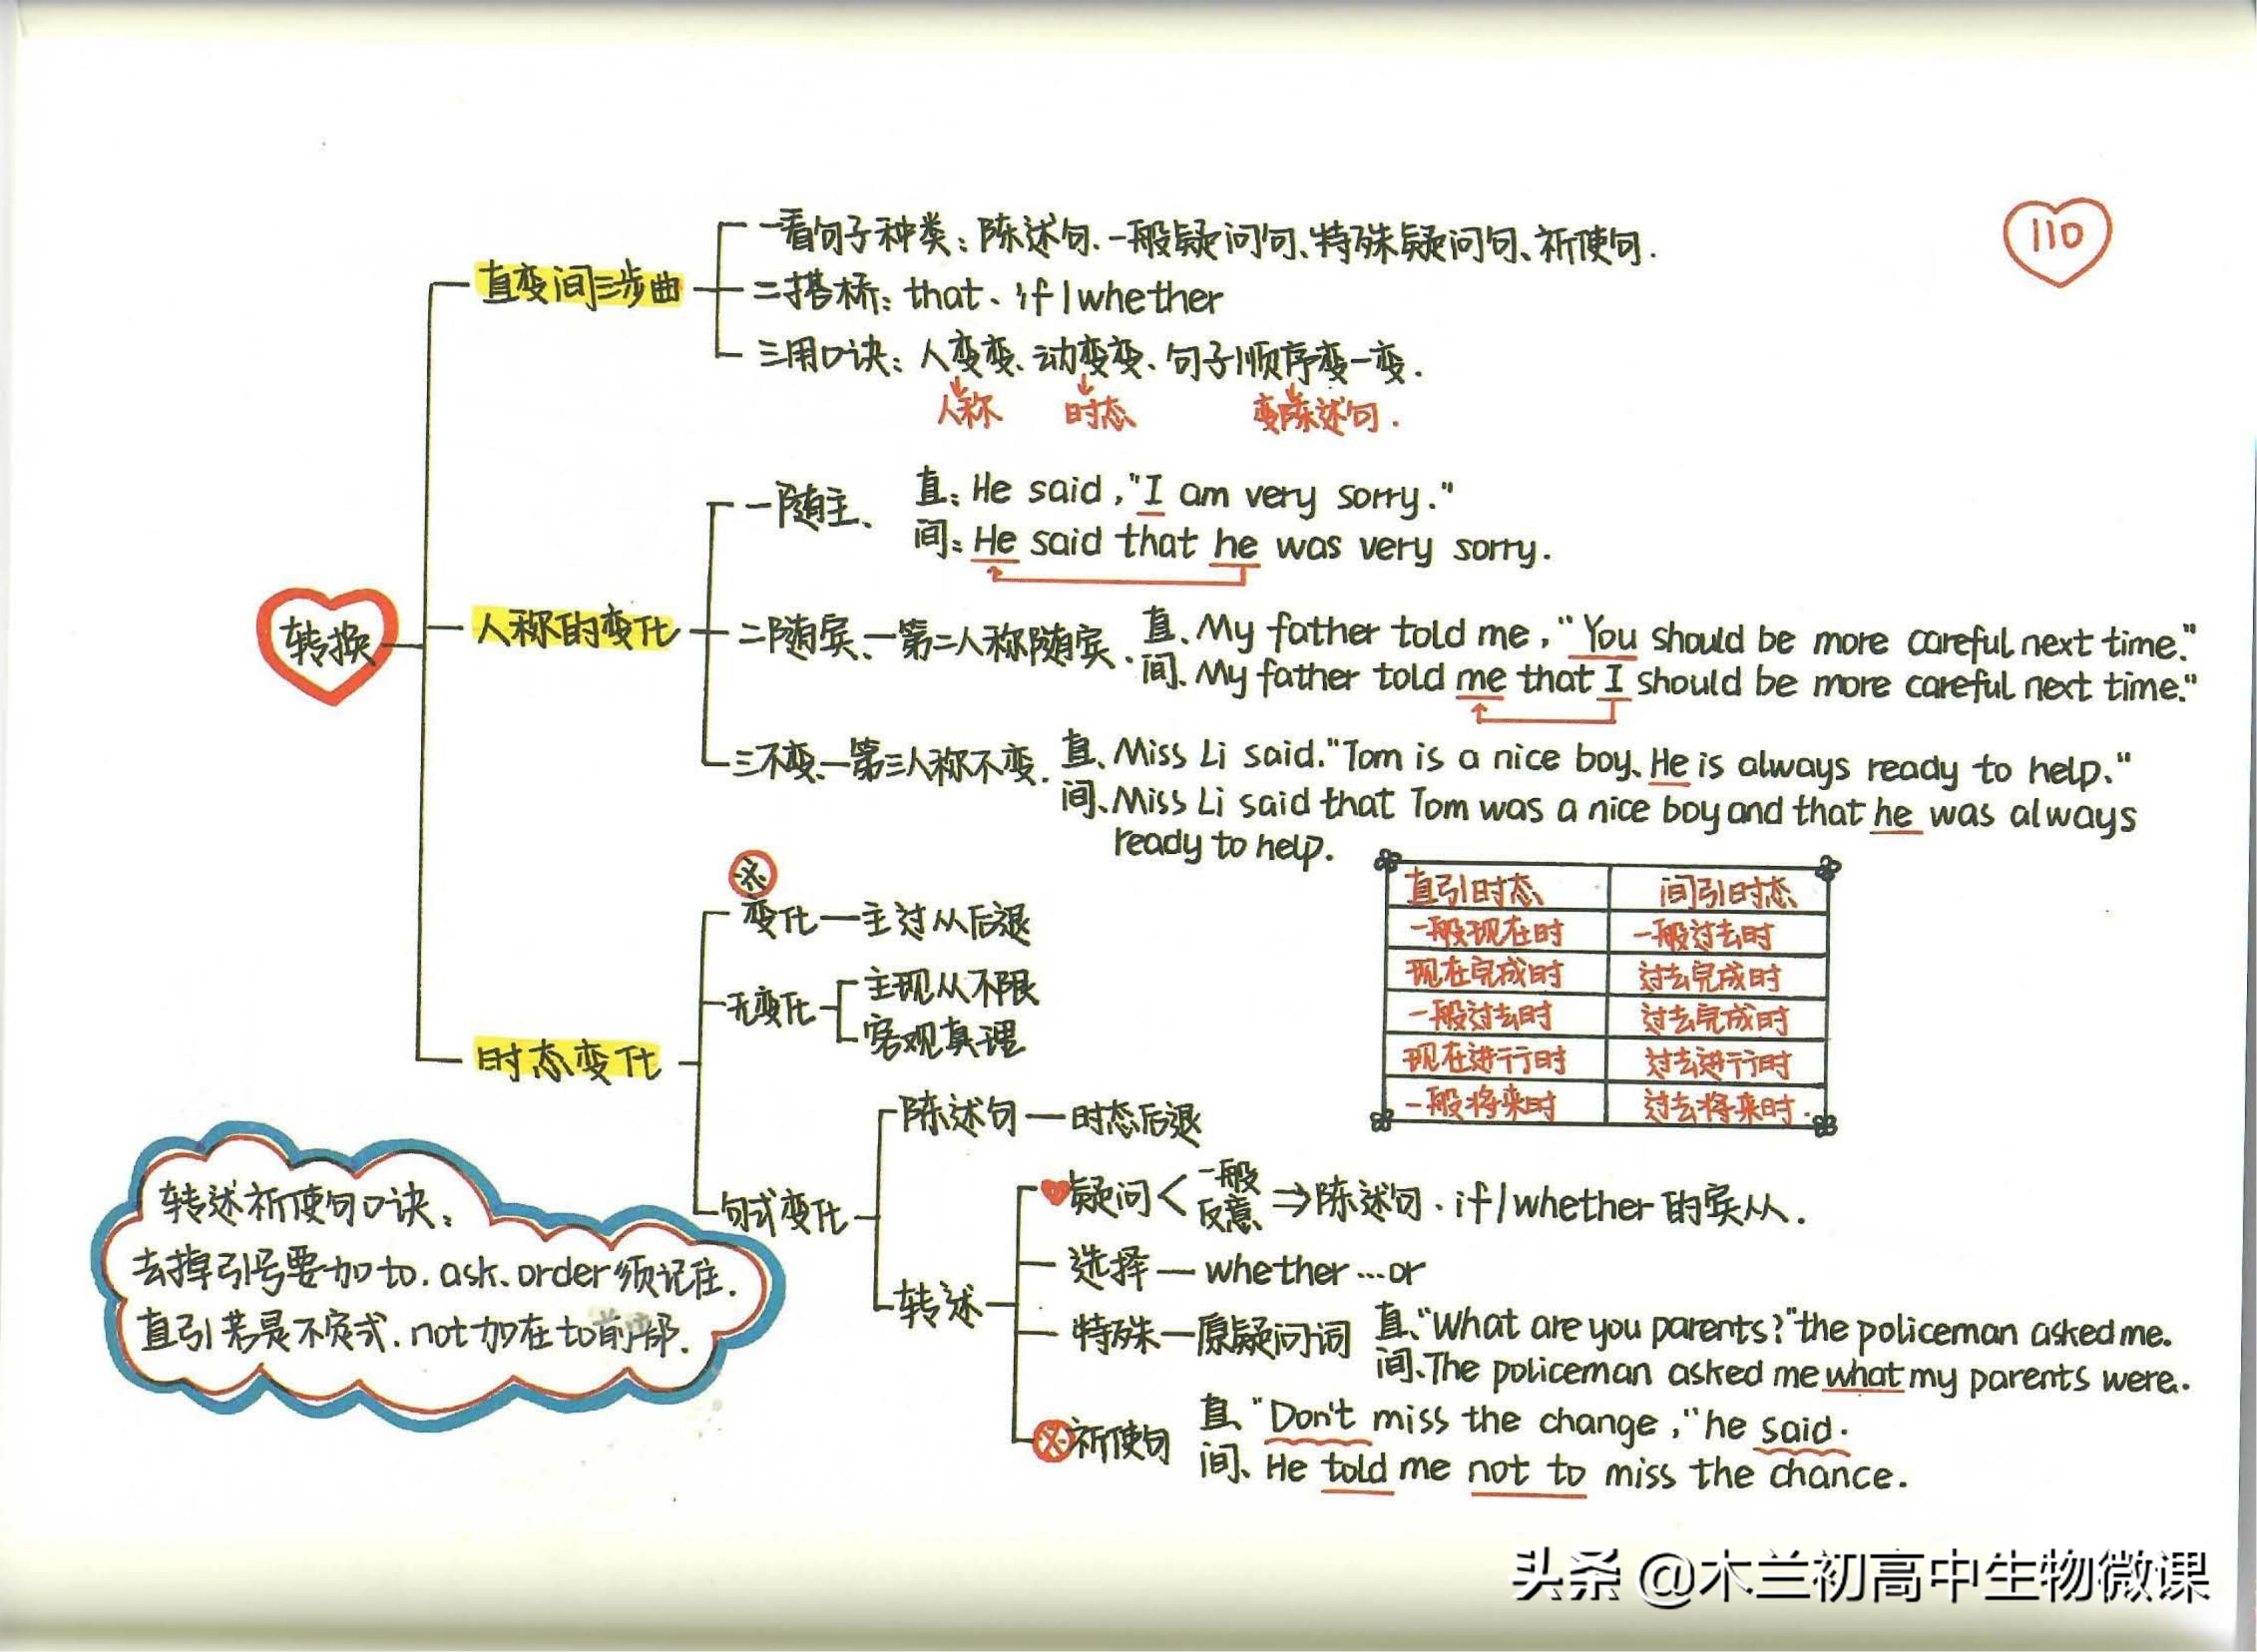 110
转换
直变间三步曲
一看句子种类：陈述句、一般疑问句、特殊疑问句、祈使句.
二搭桥：that、if/whether
三用口诀：人变变、动变变、句子顺序变一变.
人称 时态 变陈述句.
人称的变化
一随主、
直：He said,"I am very sorry."
间：He said that he was very sorry.
二随宾、一第二人称随宾.
直、My father told me,"You should be more careful next time."
间、My father told me that I should be more careful next time."
三不变、一第三人称不变.
直、Miss Li said."Tom is a nice boy、He is always ready to help."
间、Miss Li said that Tom was a nice boy and that he was always
ready to help.
直引时态 间引时态
一般现在时 一般过去时
现在完成时 过去完成时
一般过去时 过去完成时
现在进行时 过去进行时
一般将来时 过去将来时.
时态变化
变化—主过从后退
无变化
主现从不限
客观真理
句式变化
陈述句—时态后退
转述
疑问<一般 反意⇒陈述句.if/whether的宾从.
选择—whether...or
特殊—原疑问词
直、"What are you parents?"the policeman asked me.
间、The policeman asked me what my parents were.
祈使句
直、"Don't miss the change,"he said.
间、He told me not to miss the chance.
转述祈使句口诀：
去掉引号要加to.ask.order须记住.
直引若是不定式.not加在to前部.
头条 @木兰初高中生物微课